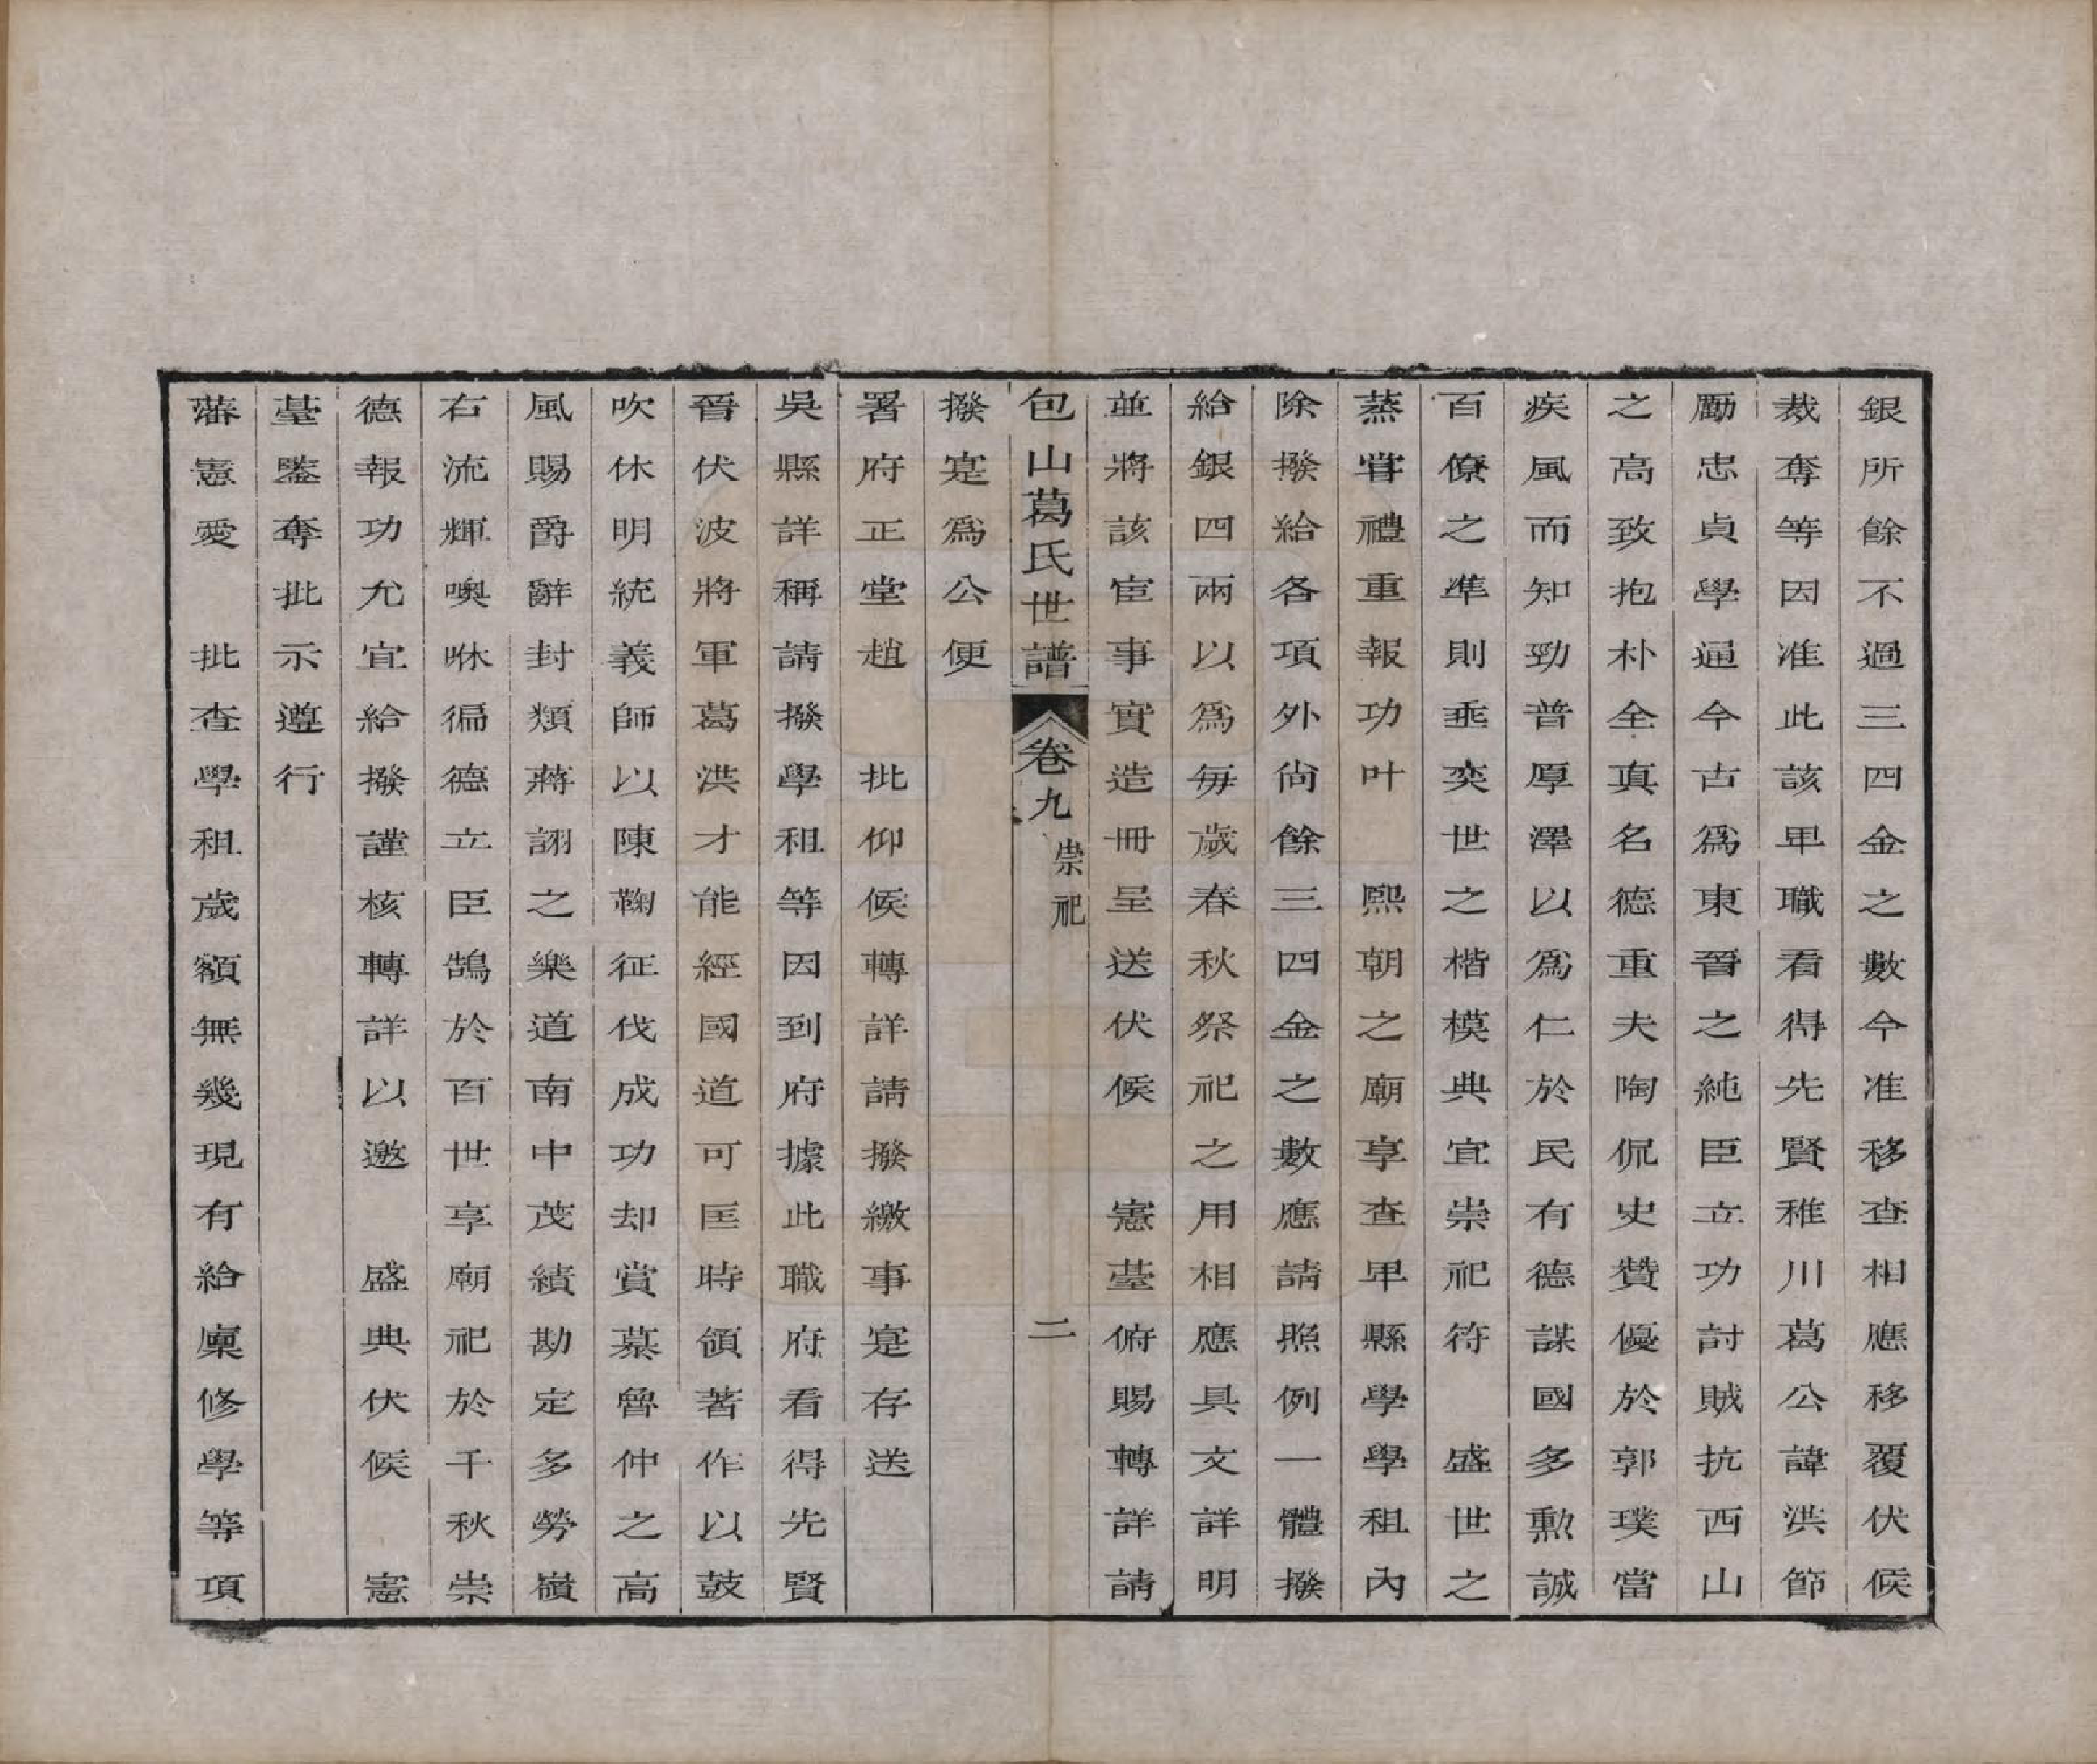 銀所餘不過三四金之數今准移查相應移覆伏候
裁奪等因准此該卑職看得先賢稚川葛公諱洪節
勵忠貞學通今古爲東晉之純臣立功討賊抗西山
之高致抱朴全真名德重夫陶侃史贊優於郭璞當
疾風而知勁普厚澤以爲仁於民有德謀國多勲誠
百僚之準則垂奕世之楷模典宜崇祀符　盛世之
蒸嘗禮重報功叶　熙朝之廟享查卑縣學學租內
除撥給各項外尚餘三四金之數應請照例一體撥
給銀四兩以爲每歲春秋祭祀之用相應具文詳明
並將該宦事實造冊呈送伏候　憲臺俯賜轉詳請
包山葛氏世譜　卷九　崇祀　二
撥寔爲公便
署府正堂趙　批仰候轉詳請撥繳事寔存送
吳縣詳稱請撥學租等因到府據此職府看得先賢
晉伏波將軍葛洪才能經國道可匡時領著作以鼓
吹休明統義師以陳鞠征伐成功却賞慕魯仲之高
風賜爵辭封類蔣詡之樂道南中茂績勘定多勞嶺
右流輝噢咻徧德立臣鵠於百世享廟祀於千秋崇
德報功允宜給撥謹核轉詳以邀　盛典伏候　憲
臺鑒奪批示遵行
藩憲愛　批查學租歲額無幾現有給廩修學等項